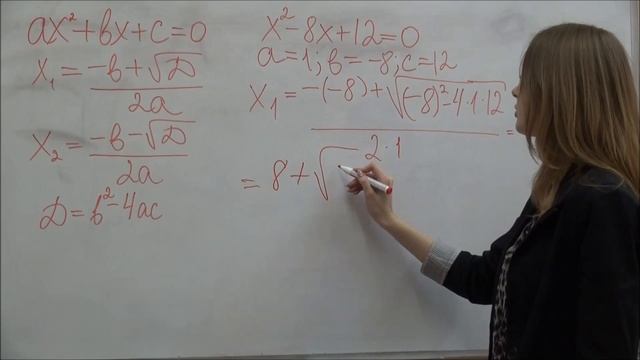 ax² + bx + c = 0
x₁ = (-b + √Д) / 2a
x₂ = (-b - √Д) / 2a
Д = b² - 4ac
x² - 8x + 12 = 0
a = 1; b = -8; c = 12
x₁ = (-(-8) + √((-8)² - 4·1·12)) / 2·1 =
= 8 + √